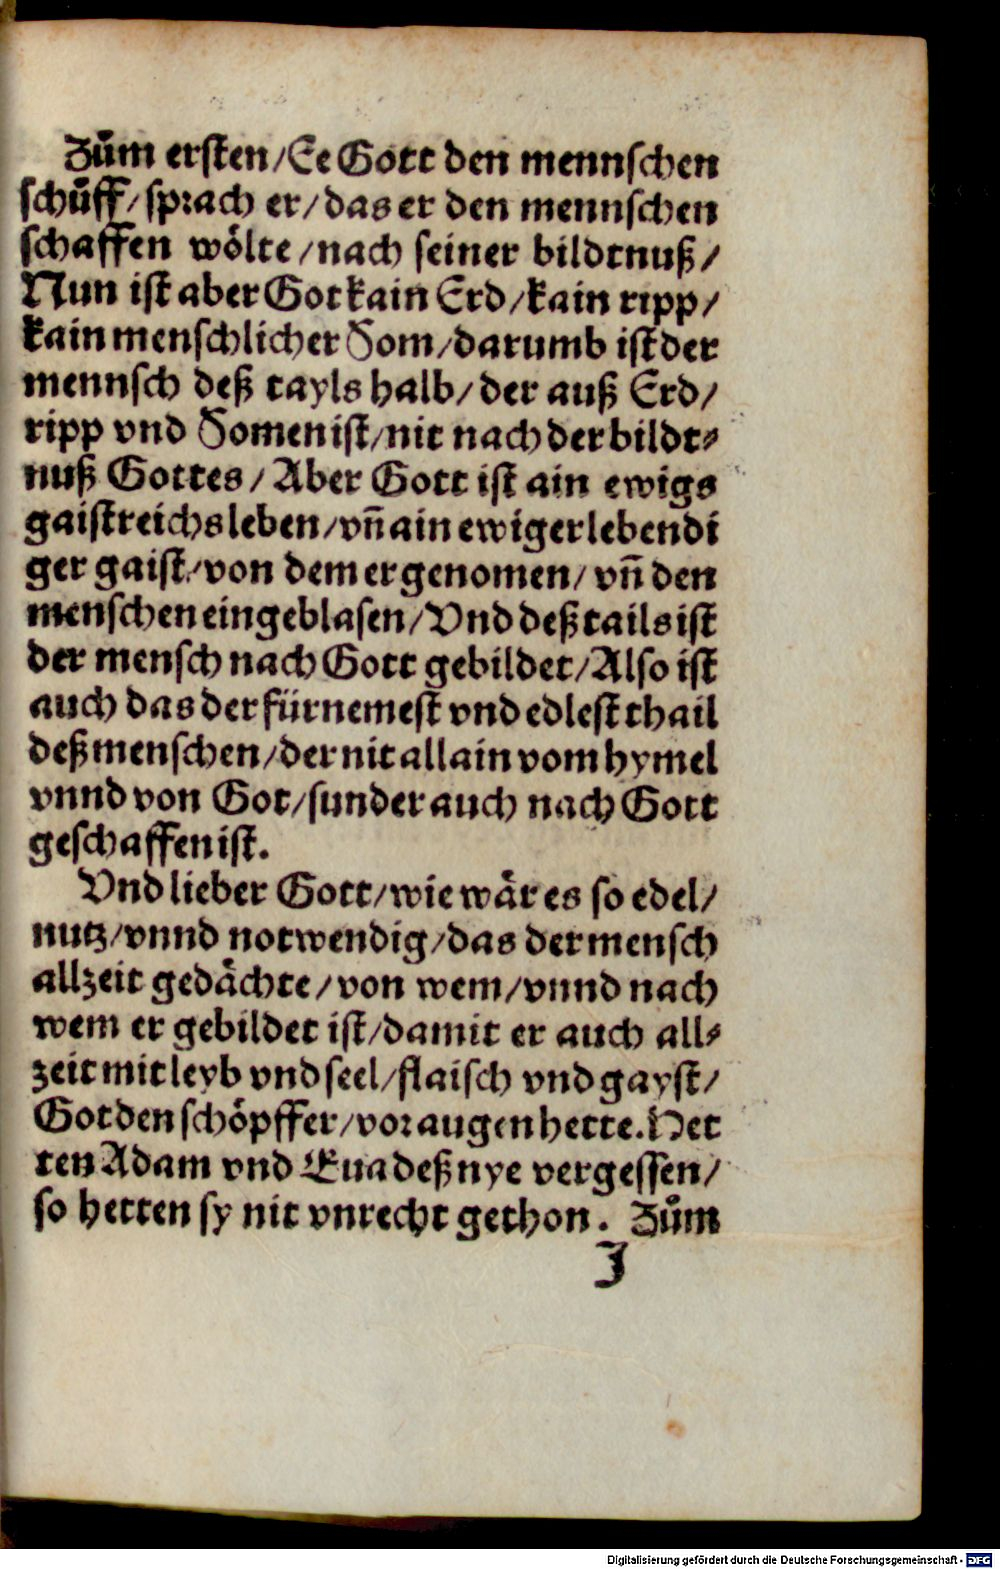 Zuͦm ersten/Ee Gott den mennschen
schuͦff/sprach er/das er den mennschen
schaffen wölte/nach seiner bildtnuß/
Nun ist aber Got kain Erd/kain ripp/
kain menschlicher Som/darumb ist der
mennsch deß tayls halb/der auß Erd/
ripp vnd Somen ist/nit nach der bildt⸗
nuß Gottes/Aber Gott ist ain ewigs
gaistreichs leben/vn̄ ain ewiger lebendi
ger gaist/von dem er genomen/vn̄ den
menschen eingeblasen/Vnd deß tails ist
der mensch nach Gott gebildet/Also ist
auch das der fürnemest vnd edlest thail
deß menschen/der nit allain vom hymel
vnnd von Got/sunder auch nach Gott
geschaffen ist.
Vnd lieber Gott/wie wär es so edel/
nutz/vnnd notwendig/das der mensch
allzeit gedächte/von wem/vnnd nach
wem er gebildet ist/damit er auch all⸗
zeit mit leyb vnd seel/flaisch vnd gayst/
Got den schöpffer/vor augen hette. Het
ten Adam vnd Eua deß nye vergessen/
so hetten sy nit vnrecht gethon. Zuͦm
J
Digitalisierung gefördert durch die Deutsche Forschungsgemeinschaft - DFG